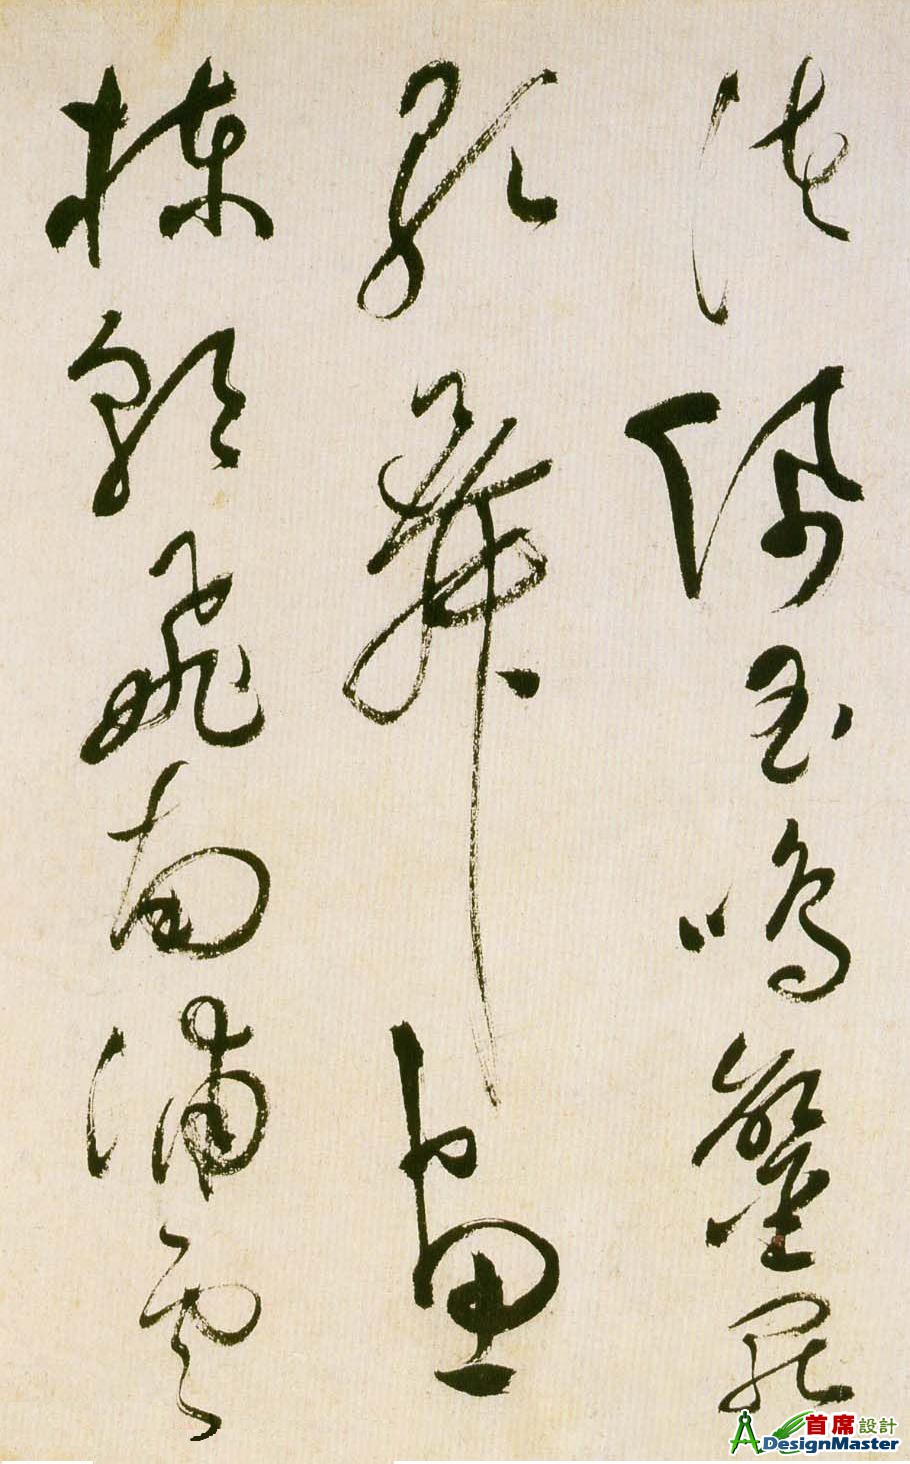 渚佩玉鳴鑾罷
歌舞畫
棟朝飛南浦雲
首席設計
DesignMaster